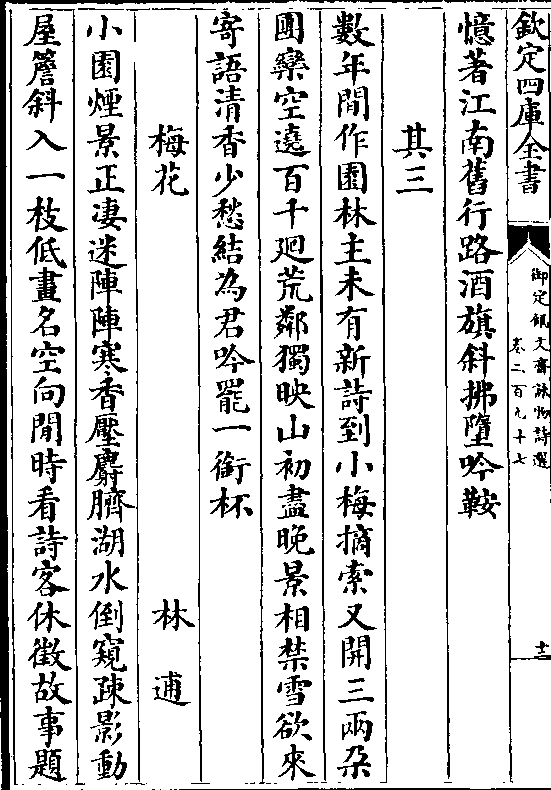 欽定四庫全書
御定佩文齋詠物詩選
卷二百九十七
十二
憶著江南舊行路酒旗斜拂墮吟鞍
其三
數年閒作園林主未有新詩到小梅摘索又開三兩朵
團欒空遶百千廻荒鄰獨映山初盡晚景相禁雪欲來
寄語清香少愁結為君吟罷一銜杯
梅花 林逋
小園煙景正凄迷陣陣寒香壓麝臍湖水倒窺疎影動
屋簷斜入一枝低畫名空向閒時看詩客休徵故事題